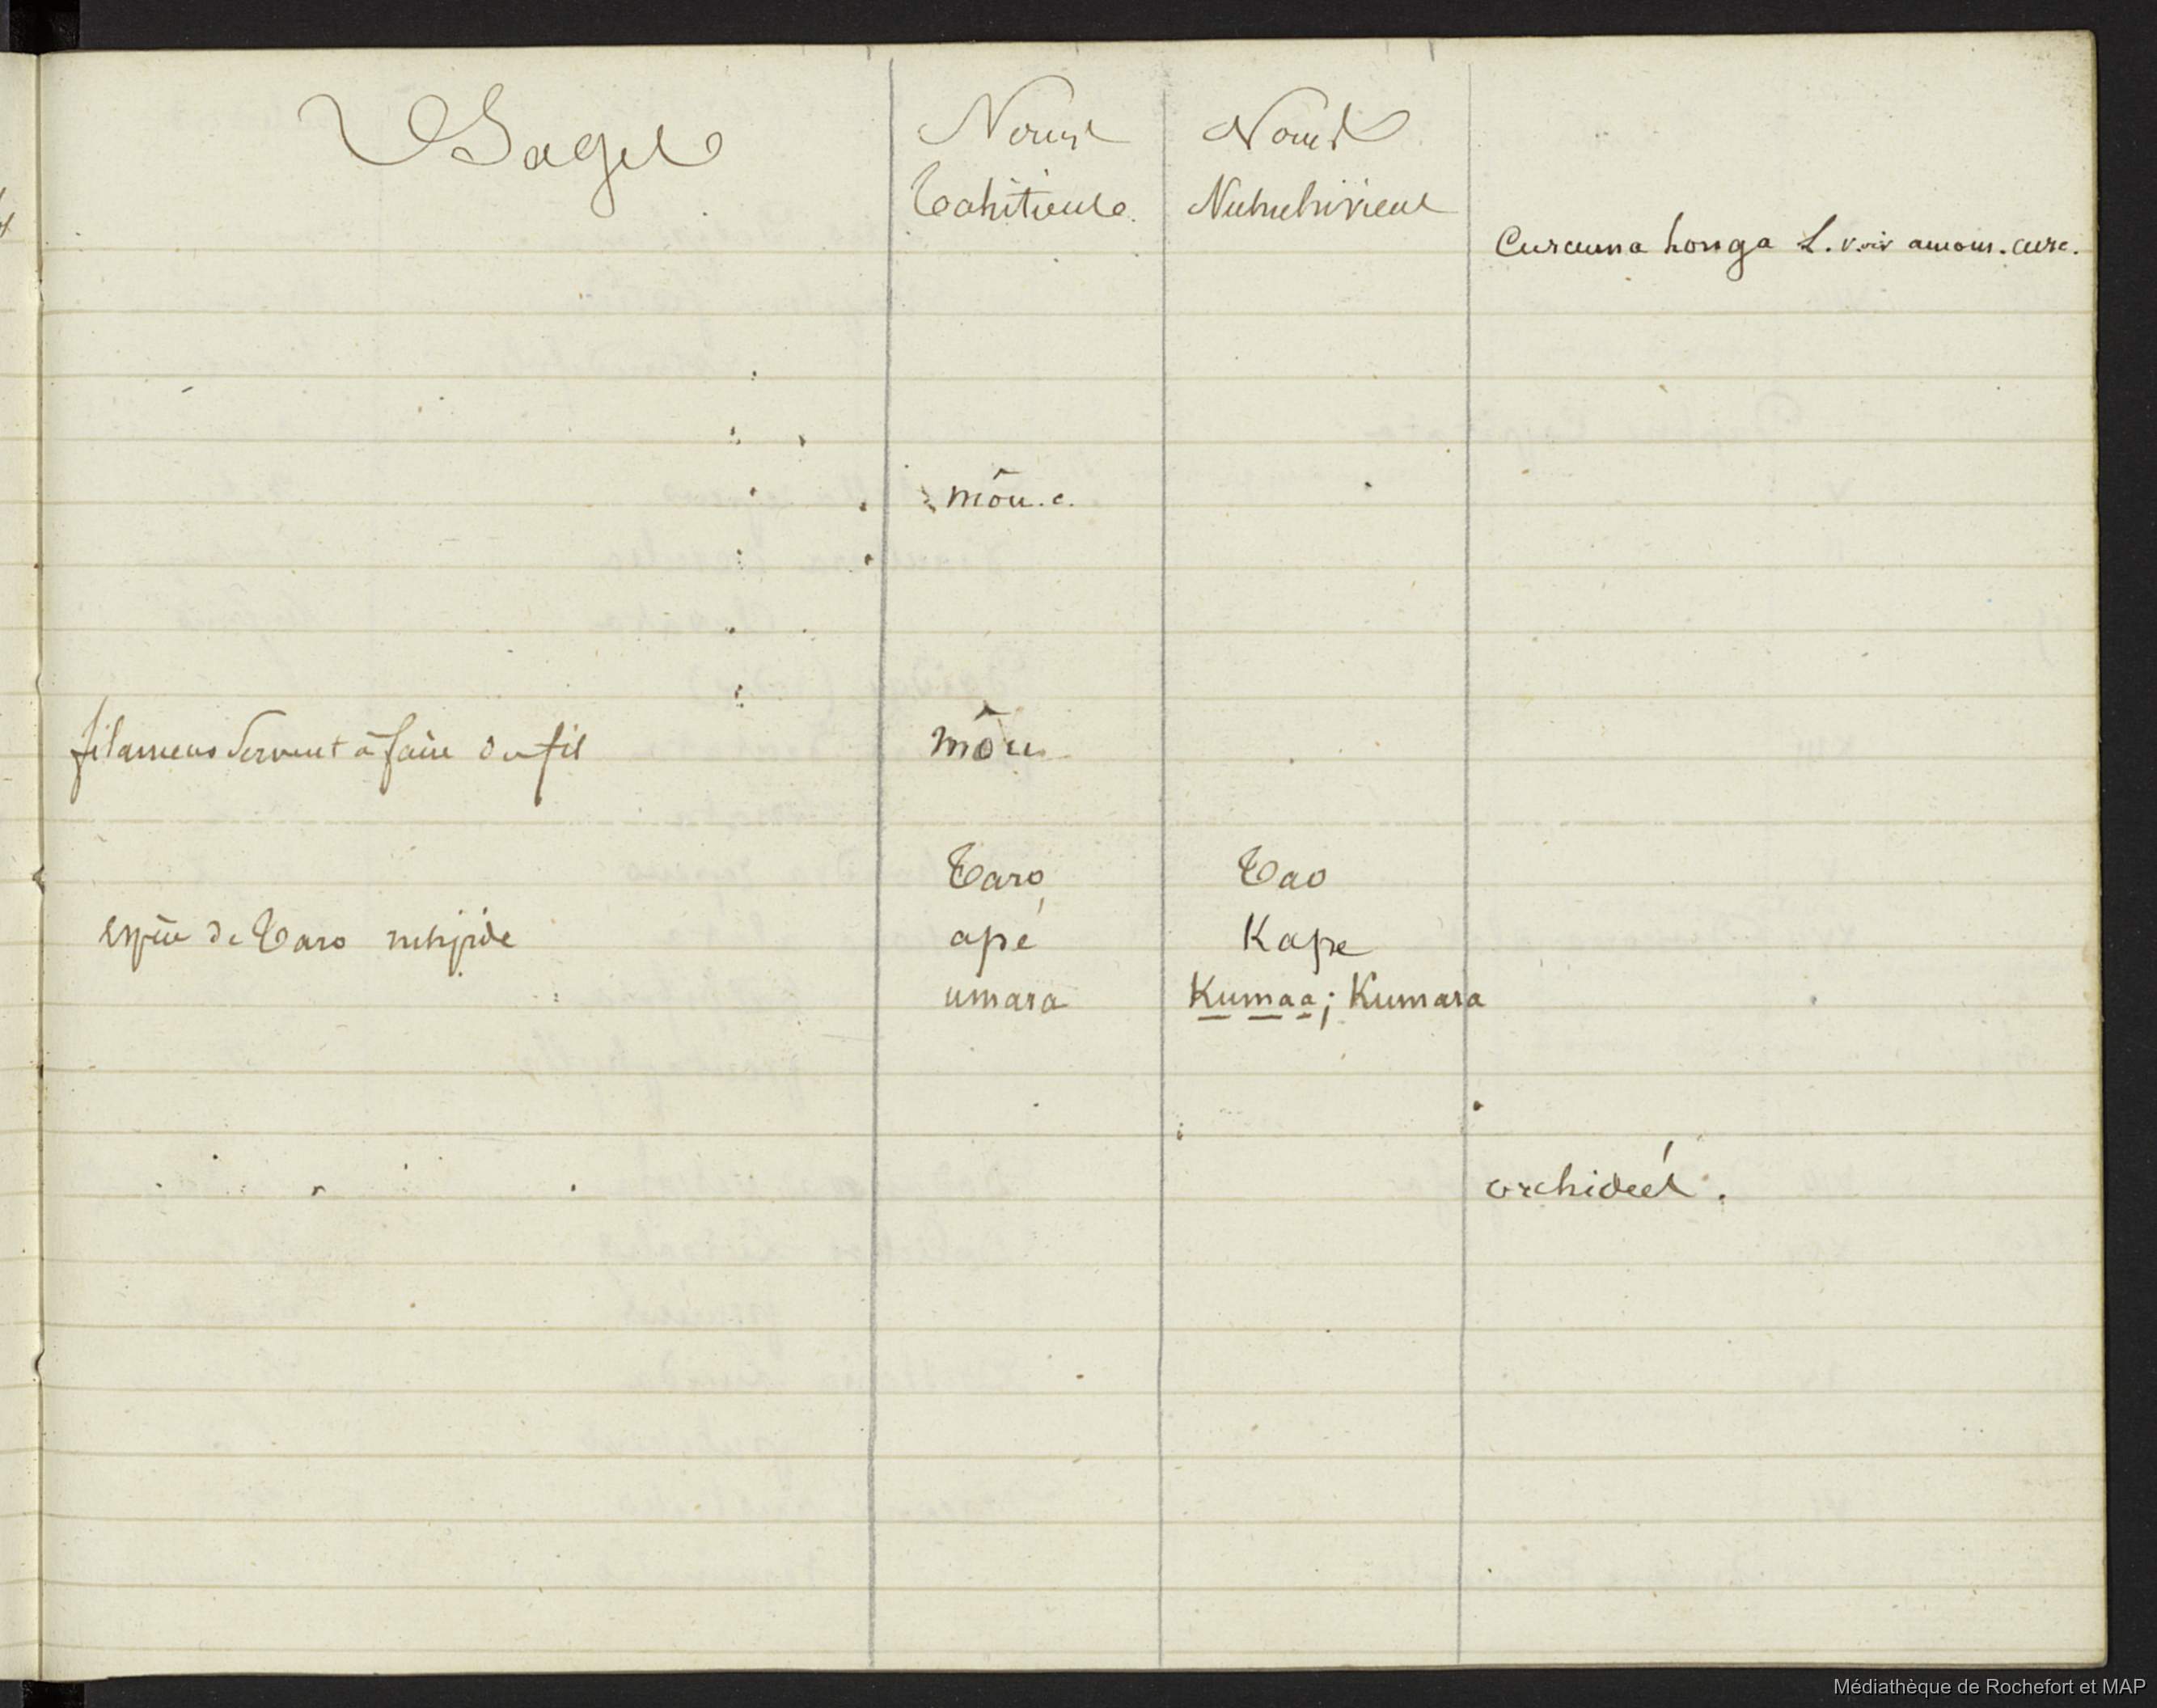 Usages Noms Noms
Tahitiens. Nuhuhiviens
Curcuma longa L. voir amom. curc.
môu. c.
filamens servent à faire du fil môu
Taro Tao
espèce de Taro apé Kape
umara Kumaa; Kumara
orchideés.
Médiathèque de Rochefort et MAP